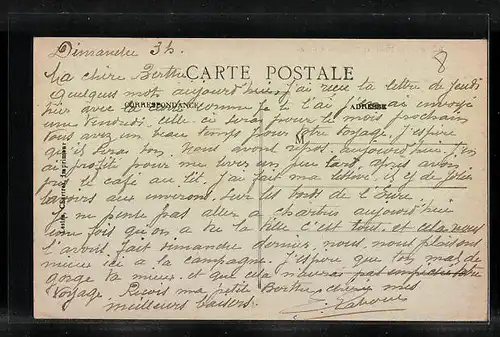 Dimanche 3h.
8
Ma chère Berthe
CARTE POSTALE
Quelques mots aujourd'hui, j'ai reçu ta lettre de jeudi
CORRESPONDANCE
ADRESSE
hier avec la carte comme je te l'ai envoyé
une vendredi. Celle ci sera pour le mois prochain
vous avez un beau temps pour votre voyage. J'espère
M
qu'il sera bon. Nous avons repos aujourd'hui. J'en
ai profité pour me lever un peu tard, après avoir
pris le café au lit. J'ai fait ma il y a de jolis
lavoirs aux environs. Sur les bords de l'Eure.
Je ne pense pas aller à Chartres aujourd'hui
une fois qu'on a vu la ville c'est tout, et cela nous
l'avons fait dimanche dernier, nous nous plaisons
mieux ici à la campagne. J'espère que ton mal de
gorge va mieux, et que cela n'aura pas empêché votre
voyage. Reçois ma petite Berthe chérie mes
meilleurs baisers.